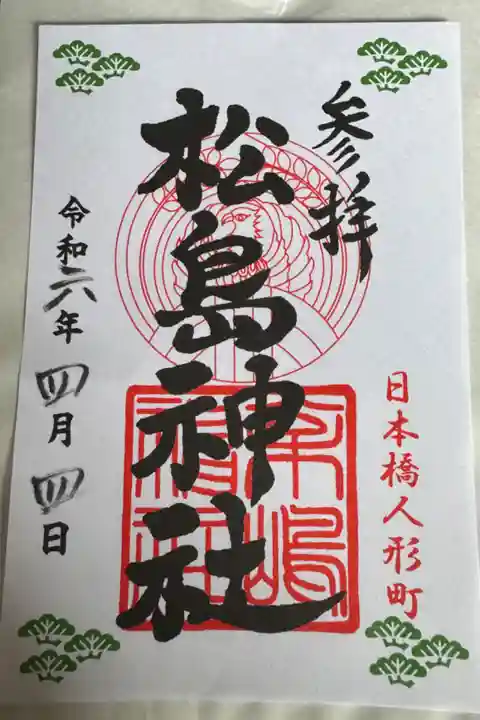 参拝
日本橋人形町
松島神社
令和六年四月四日